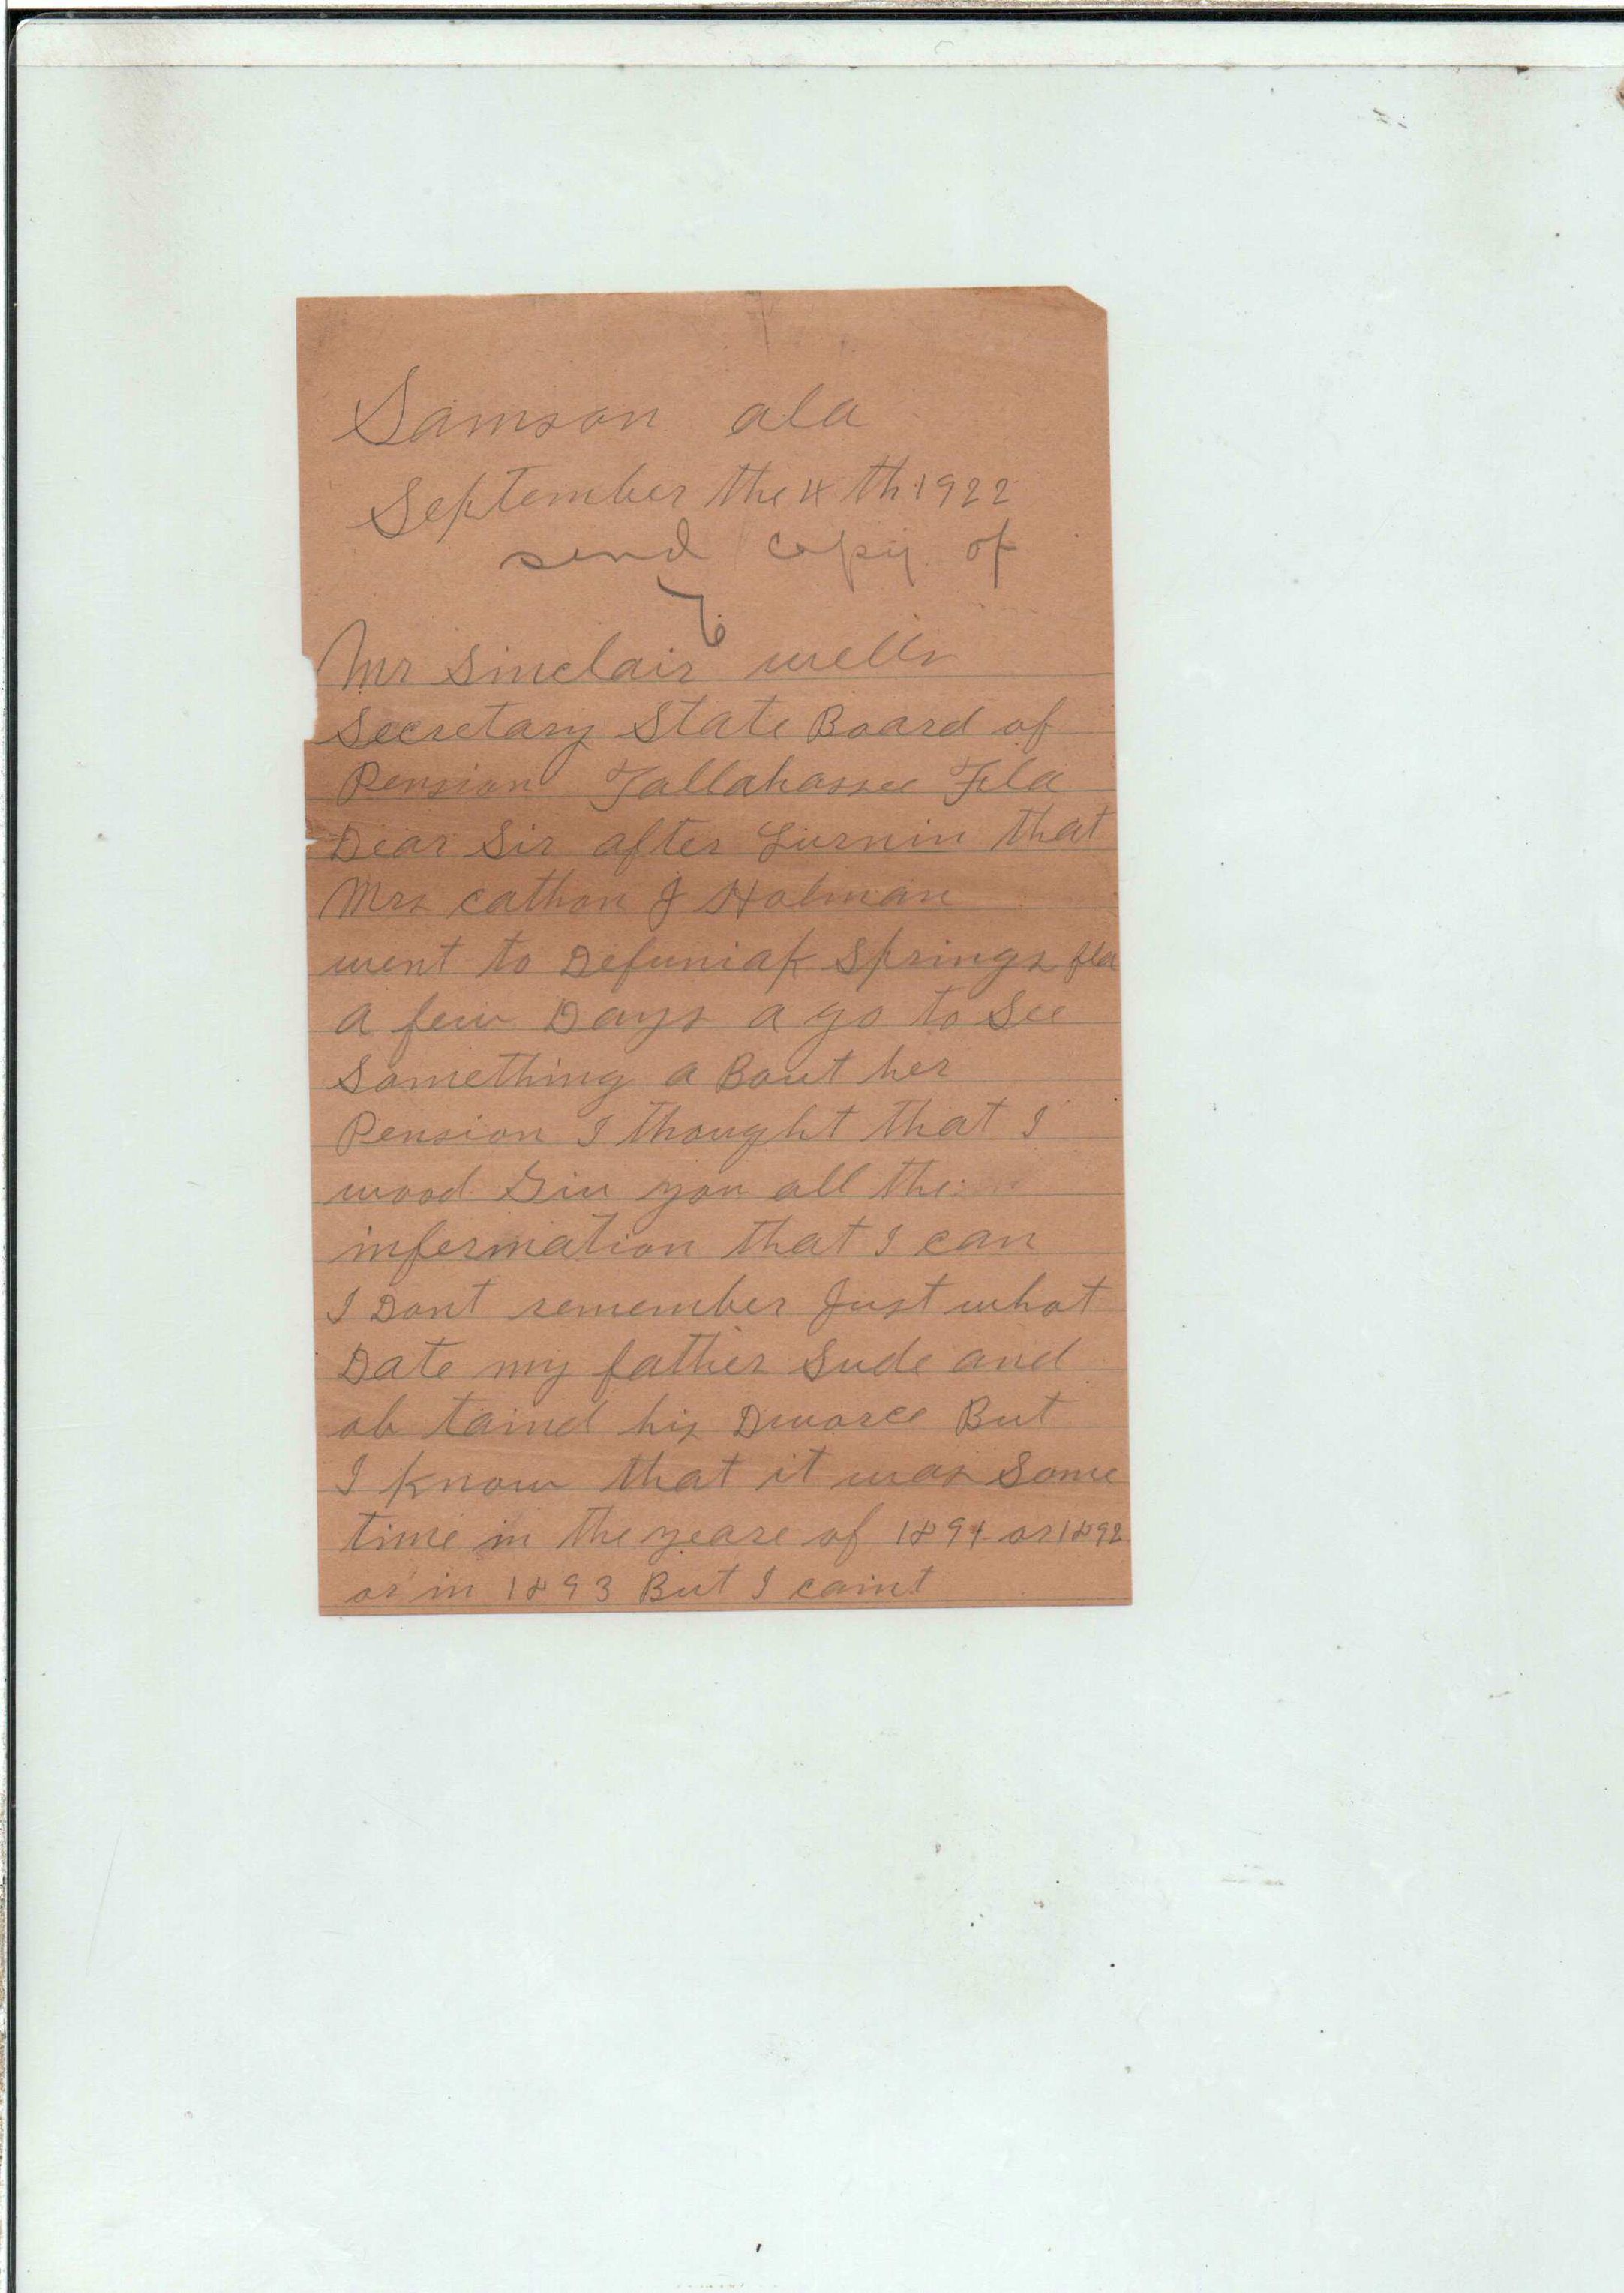 Samson ala
September the 4 th 1922
send copy of
Mr Sinclair wells
Secretary State Board of
Pension Tallahassee Fla
Dear Sir after Lurnin that
Mrs cathon J Holman
went to Defuniak Springs fla
a few Days a go to See
Something a Bout her
Pension I thought that I
wood Giv you all the
infermation that I can
I Dont remember Just what
Date my father Sude and
ob taind his Divorce But
I know that it was Some
time in the yeare of 1891 or 1892
or in 1893 But I caint